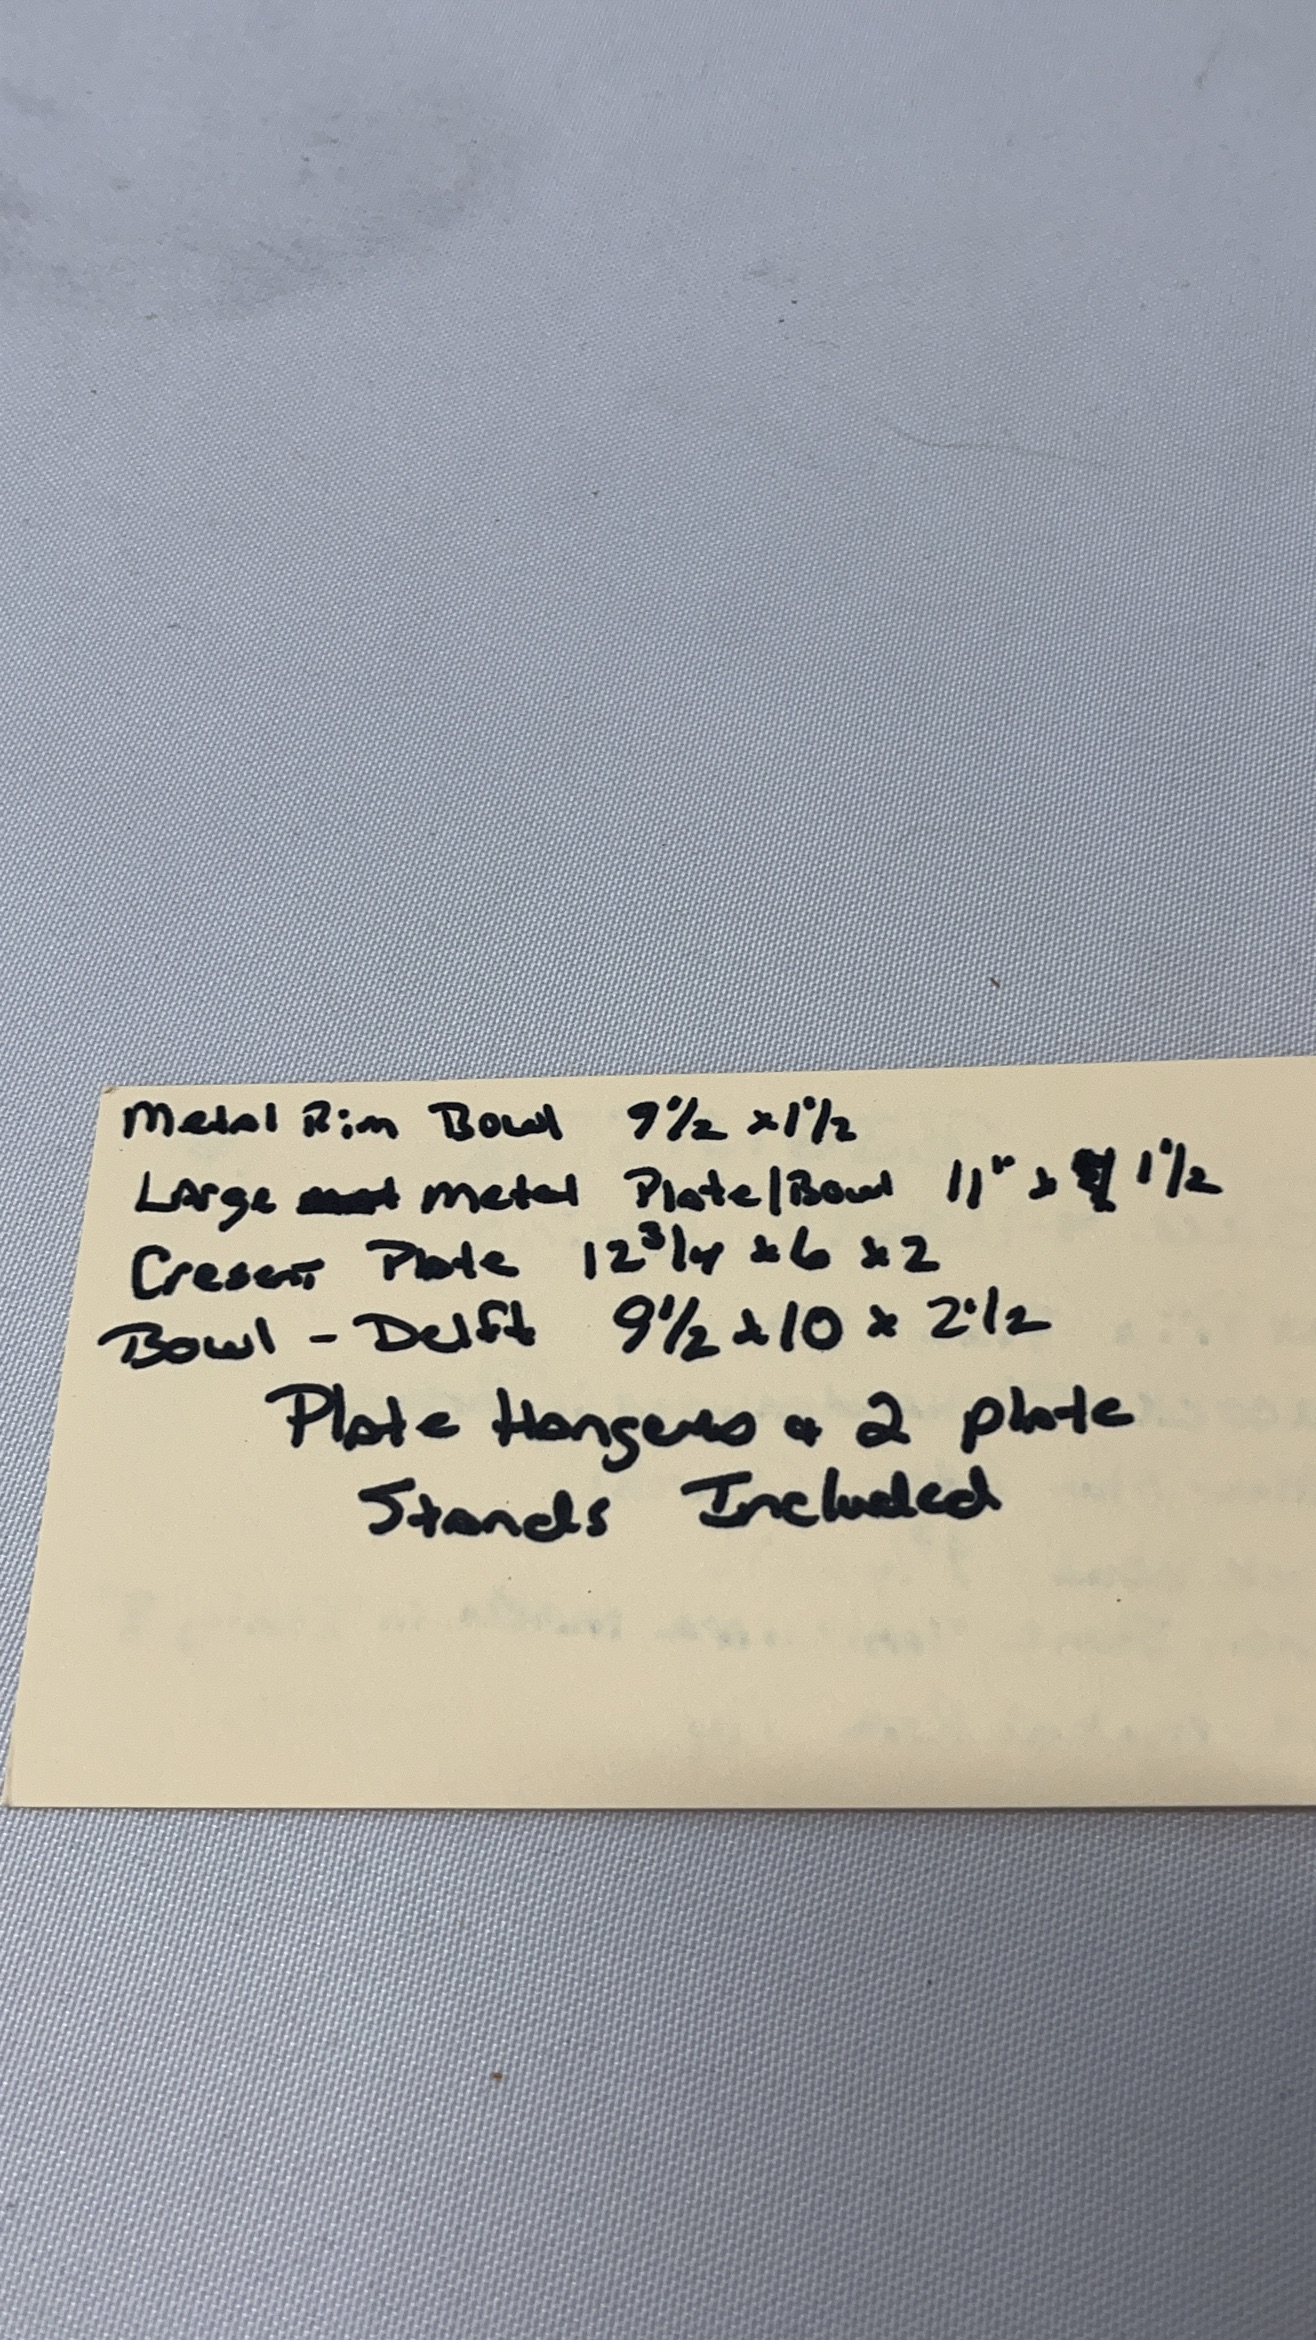 Metal Rim Bowl 9 1/2 x 1 1/2
Large metal Plate/Bowl 11" x 1 1/2
Cresent Plate 12 3/4 x 6 x 2
Bowl - Delft 9 1/2 x 10 x 2 1/2
Plate Hangers & 2 plate
Stands Included